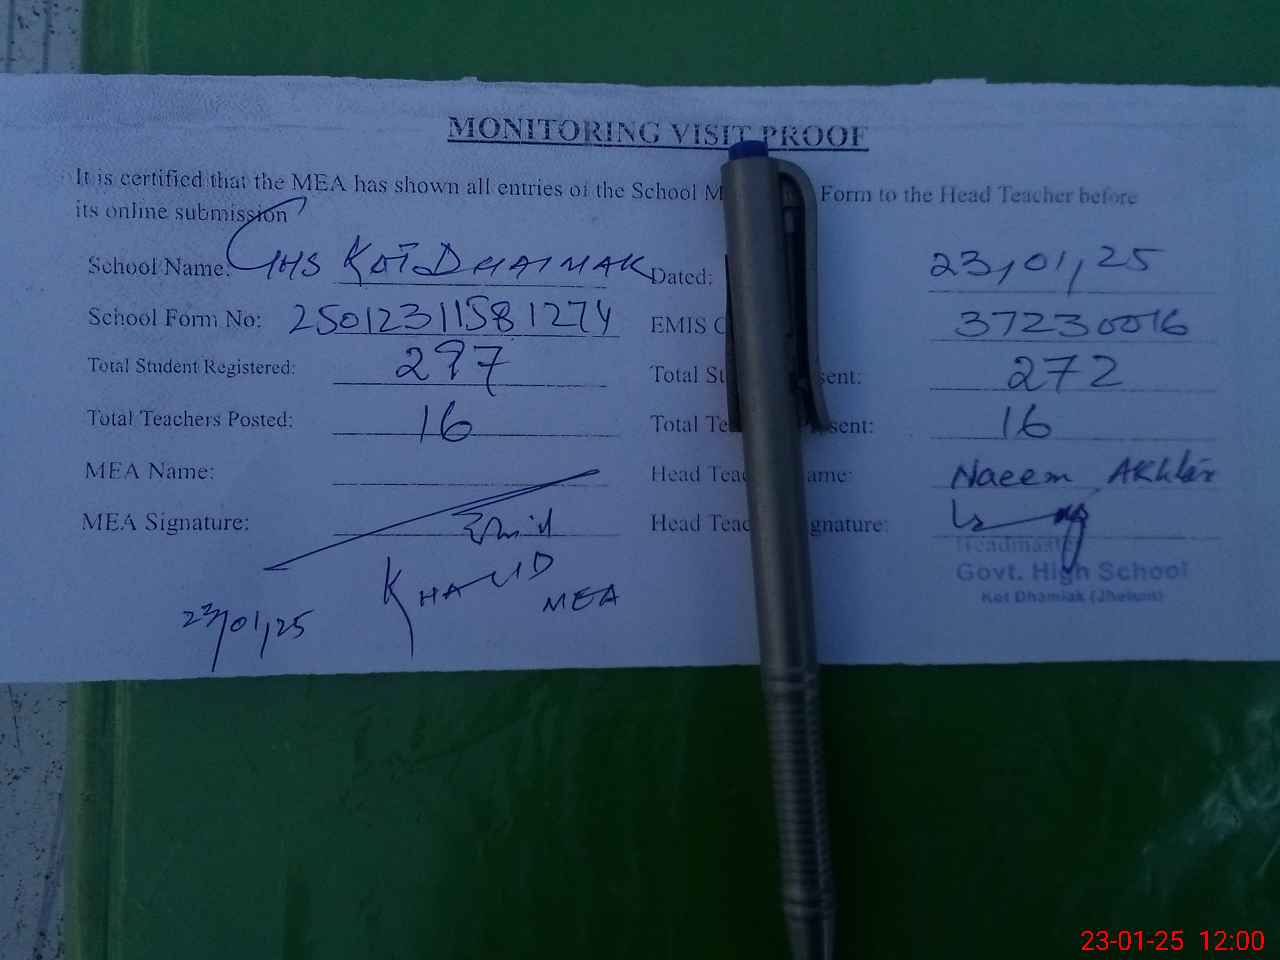 MONITORING VISIT PROOF
It is certified that the MEA has shown all entries of the School M Form to the Head Teacher before
its online submission
School Name: GHS KOT DHAIMAK Dated: 23,01,25
School Form No: 25012311581274 EMIS C 37230016
Total Student Registered: 297 Total St sent: 272
Total Teachers Posted: 16 Total Te sent: 16
MEA Name: Head Teac ame: Naeem Akhtar
MEA Signature: Head Teac gnature:
KHALID
MEA
23/01,25
Headmaster
Govt. High School
Kot Dhamiak (Jhelum)
23-01-25 12:00